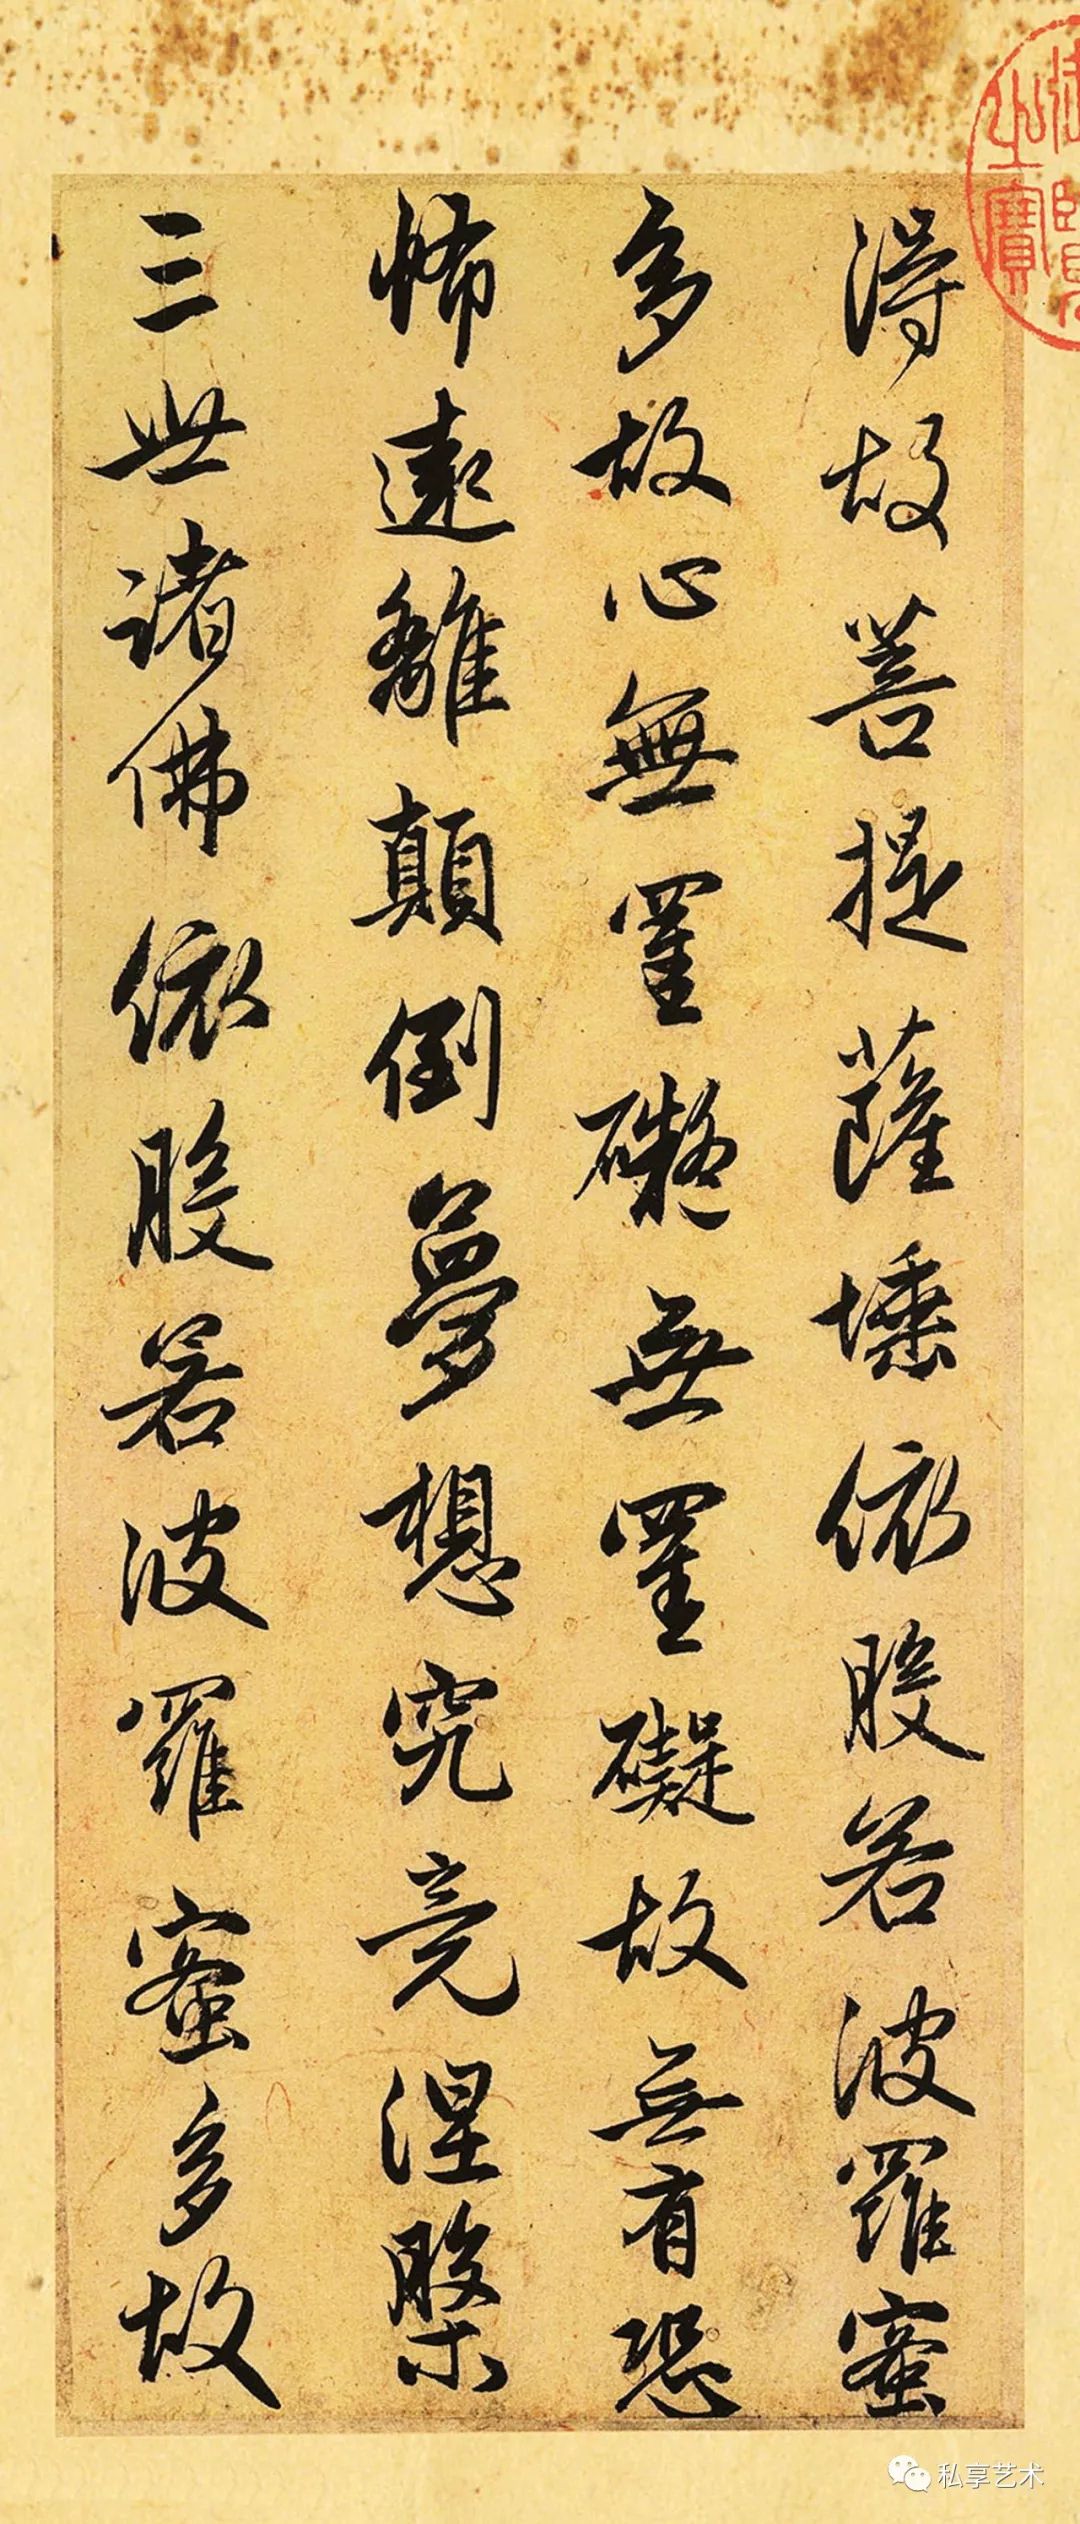 得故菩提薩埵依般若波羅蜜
多故心無罣礙無罣礙故無有恐
怖遠離顛倒夢想究竟涅槃
三世諸佛依般若波羅蜜多故
之寶
私享艺术